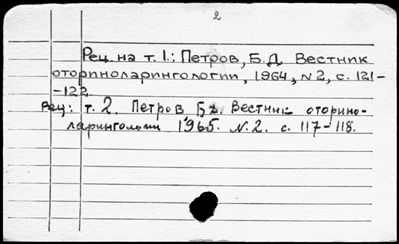 2
Рец. на т. 1.: Петров, Б.Д. Вестник
оториноларингологии, 1964, N 2, с. 121-
-122.
Рец: т. 2. Петров Б.Д. Вестник оторино-
ларингологии 1965. N. 2. с. 117-118.